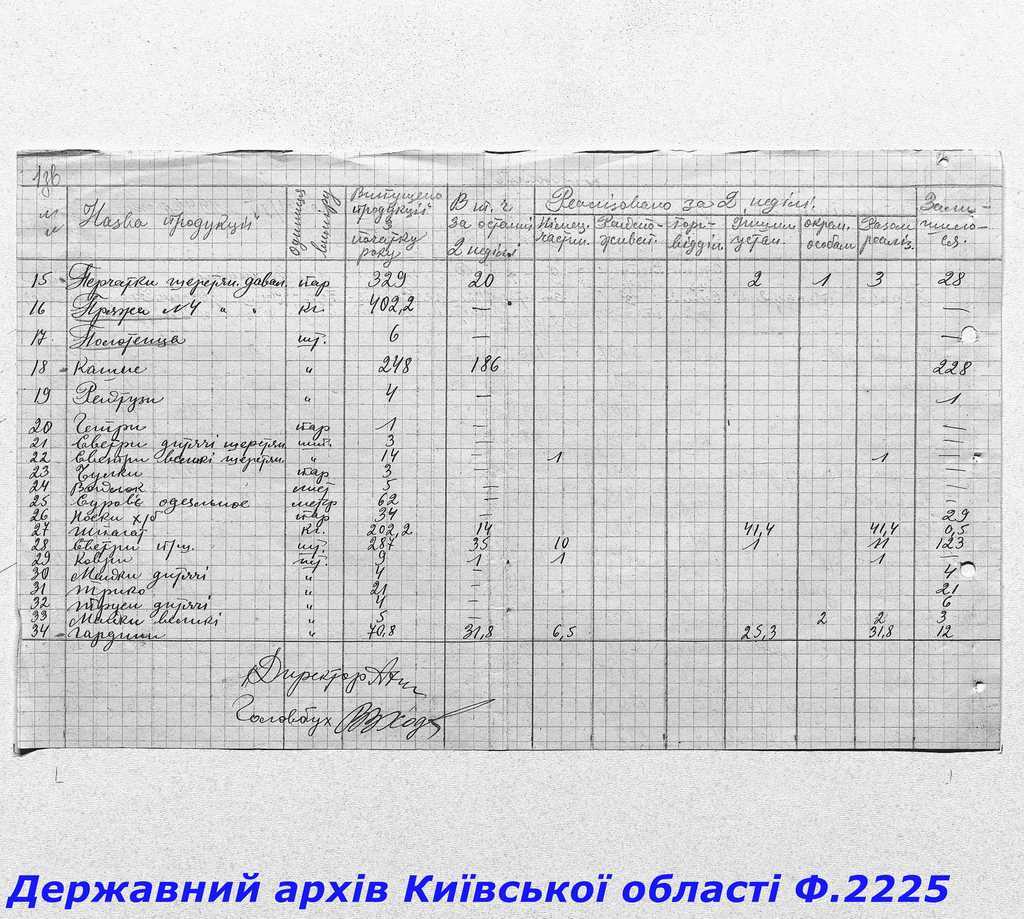 136
№№ Назва продукції Одиниця виміру Випущено продукції з початку року В т. ч. за останні 2 неділі Реалізовано за 2 неділі: Залишилося
Німец. частин. Торг. відділ. Іншим устан. окрем. особам Разом реаліз.
15 Перчатки шерстян. давал. пар 329 20 2 1 3 28
16 Пряжа №4 " " кг. 402,2 — —
17 Полотенца шт. 6 — —
18 Кашне " 248 186 228
19 Рейтузи " 4 — 1
20 Гетри пар 1 — —
21 Светри дитячі шерстян. шт. 3 — —
22 Светри великі шерстян. " 14 — 1 1
23 Чулки пар 3 — —
24 Войлок лист 5 — —
25 Суровьё одеяльное метр 62 — —
26 Носки х/б пар 34 — 29
27 Шпагат кг. 202,2 14 41,4 41,4 0,5
28 Светри п/ш. шт. 287 35 10 1 11 123
29 Коври шт. 9 1 1 1 —
30 Майки дитячі " 4 — 4
31 Трико " 21 — 21
32 Труси дитячі " 4 — 6
33 Майки великі " 5 — 2 2 3
34 Гардини " 70,8 31,8 6,5 25,3 31,8 12
Директор
Головбух
Державний архів Київської області Ф.2225